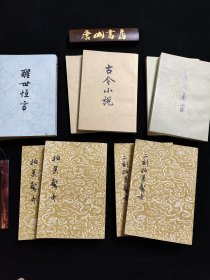 唐山书店
醒世恒言
古今小说
通言
拍案惊奇
拍案惊奇
二刻拍案惊奇
二刻拍案惊奇